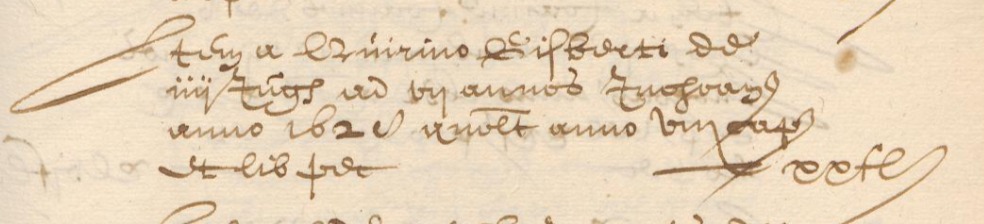 Item a Quirino Gisberti de
iiij Jugs ad vij annos Inchoan
anno 162 quolt anno viij cap
et lib pec xx fl